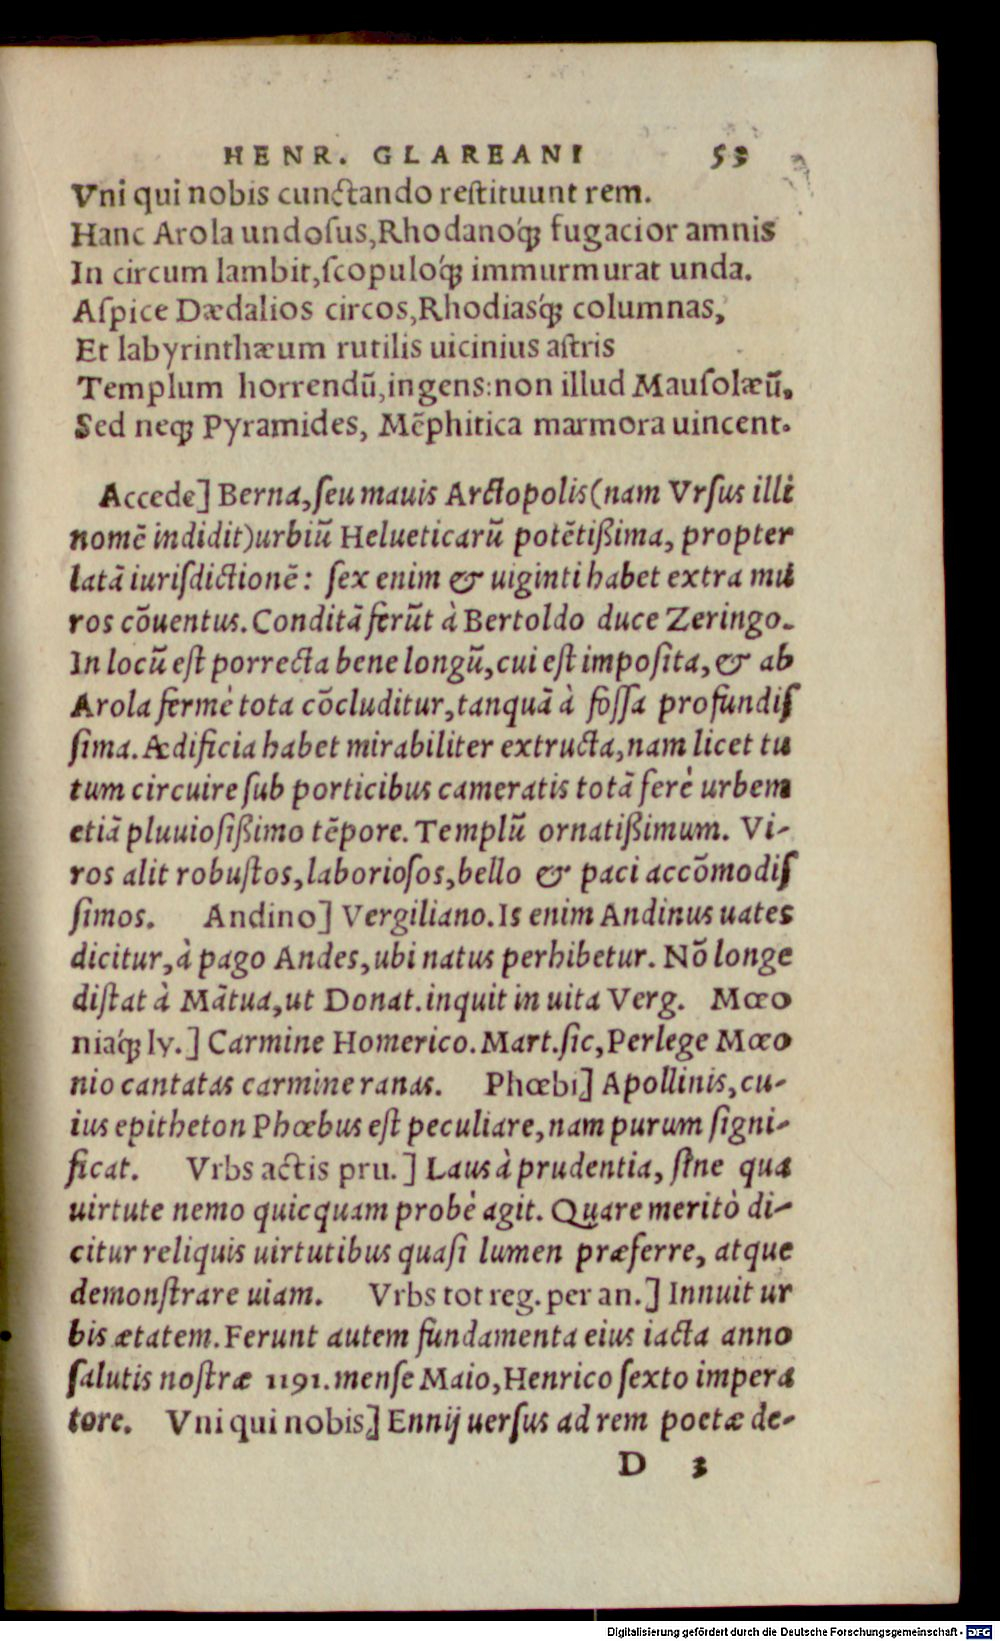 HENR. GLAREANI 53
Vni qui nobis cunctando reſtituunt rem.
Hanc Arola undoſus, Rhodanoq́ꝫ fugacior amnis
In circum lambit, ſcopuloq́ꝫ immurmurat unda.
Aſpice Dædalios circos, Rhodiasq́ꝫ columnas,
Et labyrinthæum rutilis uicinius aſtris
Templum horrendũ, ingens: non illud Mauſolæũ.
Sed neqꝫ Pyramides, Mẽphitica marmora uincent.
Accede] Berna, ſeu mauis Arctopolis (nam Vrſus illi
nomẽ indidit) urbiũ Helueticarũ potẽtißima, propter
latã iuriſdictionẽ: ſex enim & uiginti habet extra mu
ros cõuentus. Conditã ferũt à Bertoldo duce Zeringo.
In locũ eſt porrecta bene longũ, cui eſt impoſita, & ab
Arola fermè tota cõcluditur, tanquã à foſſa profundiſ
ſima. Ædificia habet mirabiliter extructa, nam licet tu
tum circuire ſub porticibus cameratis totã ferè urbem
etiã pluuioſißimo tẽpore. Templũ ornatißimum. Vi-
ros alit robuſtos, laborioſos, bello & paci accõmodiſ
ſimos. Andino] Vergiliano. Is enim Andinus uates
dicitur, à pago Andes, ubi natus perhibetur. Nõ longe
diſtat à Mãtua, ut Donat. inquit in uita Verg. Mœo
niaq́ꝫ ly.] Carmine Homerico. Mart. ſic, Perlege Mœo
nio cantatas carmine ranas. Phœbi] Apollinis, cu-
ius epitheton Phœbus eſt peculiare, nam purum ſigni-
ficat. Vrbs actis pru.] Laus à prudentia, ſine qua
uirtute nemo quicquam probè agit. Quare meritò di-
citur reliquis uirtutibus quaſi lumen præferre, atque
demonſtrare uiam. Vrbs tot reg. per an.] Innuit ur
bis ætatem. Ferunt autem fundamenta eius iacta anno
ſalutis noſtræ 1191. menſe Maio, Henrico ſexto impera
tore. Vni qui nobis] Ennij uerſus ad rem poetæ de-
D 3
Digitalisierung gefördert durch die Deutsche Forschungsgemeinschaft - DFG